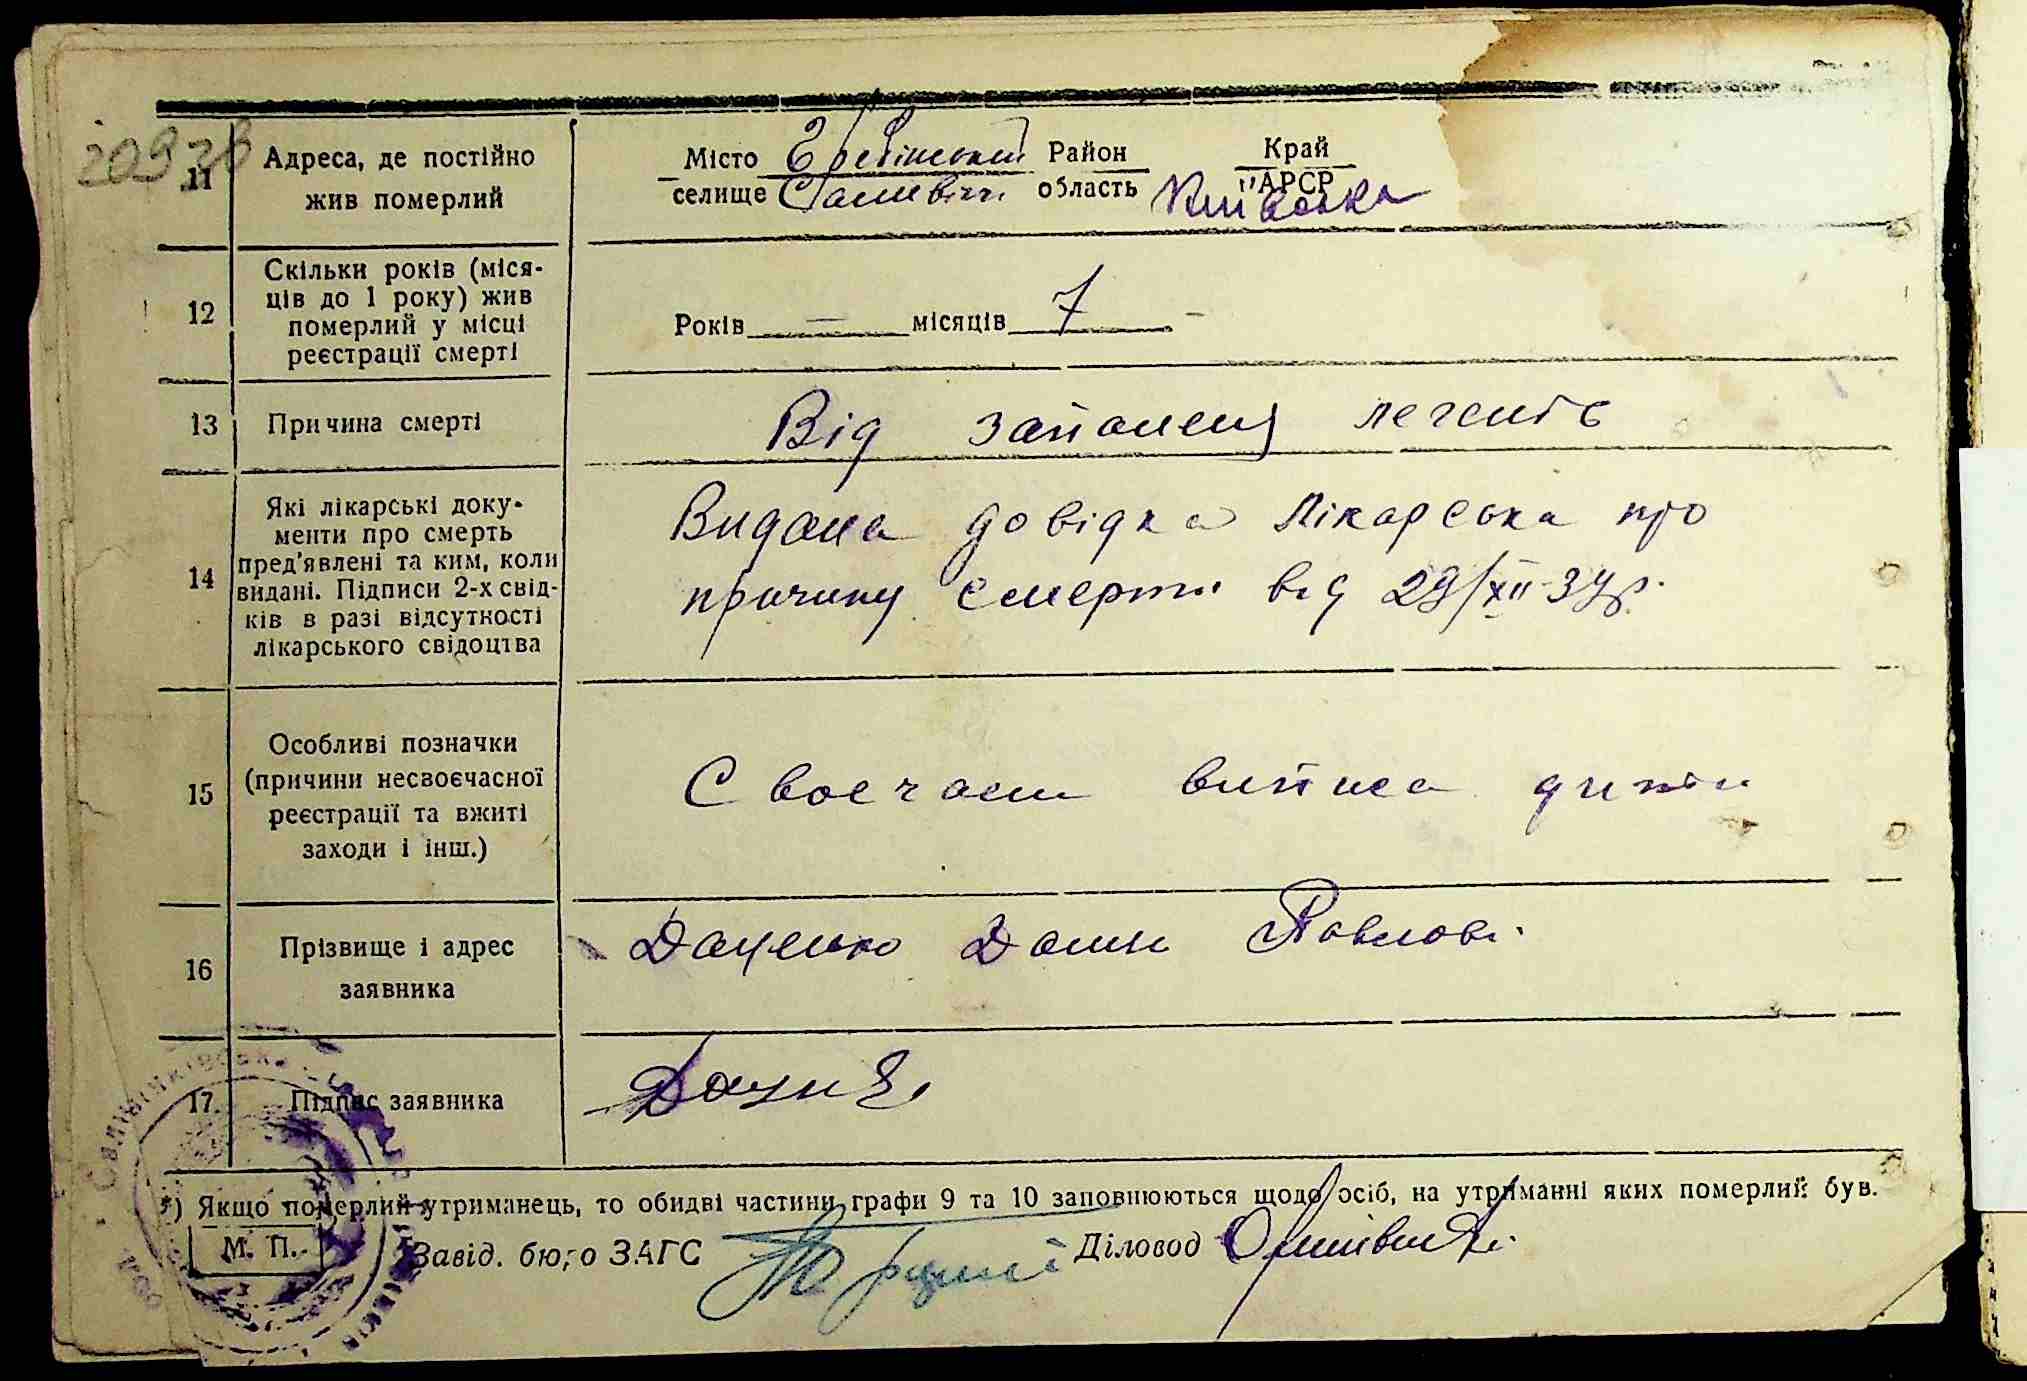 20938
11
Адреса, де постійно
жив померлий
Місто Район Край
селище Саливінки область АРСР
Київська
12
Скільки років (міся-
ців до 1 року) жив
померлий у місці
реєстрації смерті
Років — місяців 7
13
Причина смерті
Від запаленя легенів
14
Які лікарські доку-
менти про смерть
пред'явлені та ким, коли
видані. Підписи 2-х свід-
ків в разі відсутності
лікарського свідоцтва
Видана довідка лікарська про
причину смерти від 29/XII-34р.
15
Особливі позначки
(причини несвоєчасної
реєстрації та вжиті
заходи і інш.)
Своєчасна виписа
16
Прізвище і адрес
заявника
Даценко Павлов
17.
Підпис заявника
*) Якщо померлий утриманець, то обидві частини графи 9 та 10 заповнюються щодо осіб, на утриманні яких померлий був.
М. П.
Завід. бюро ЗАГС
Діловод